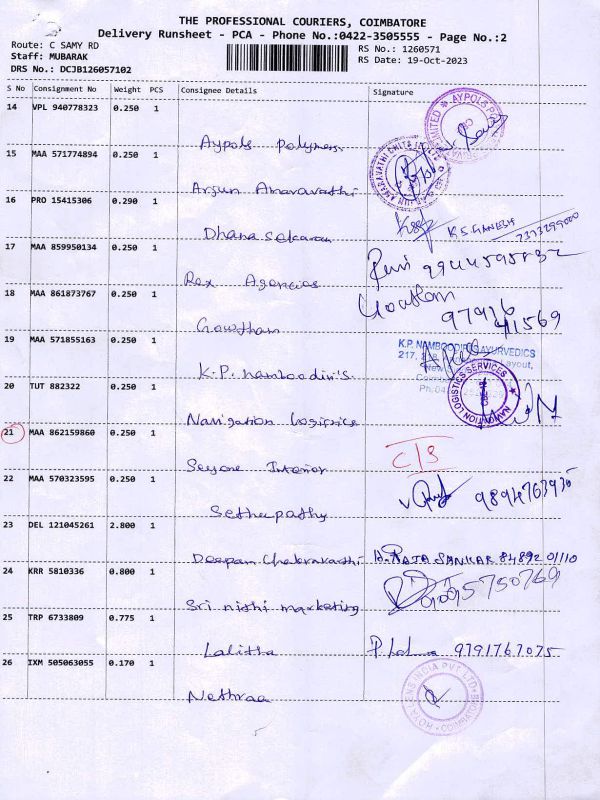 THE PROFESSIONAL COURIERS, COIMBATORE
Delivery Runsheet - PCA - Phone No.:0422-3505555 - Page No.:2
Route: C SAMY RD
RS No.: 1260571
Staff: MUBARAK
RS Date: 19-Oct-2023
DRS No.: DCJB126057102
S No Consignment No Weight PCS Consignee Details Signature
14 VPL 940778323 0.250 1
Aypols polymers
15 MAA 571774894 0.250 1
Arjun Amaravathi
16 PRO 15415306 0.290 1
Dhana sekaran
K.S.GANESH
7373299000
17 MAA 859950134 0.250 1
Rex Agencies
18 MAA 861873767 0.250 1
Gowtham
Goutham
97916
41569
19 MAA 571855163 0.250 1
K.P. namboodiri's
K.P. NAMBOODIRI'S AYURVEDICS
20 TUT 882322 0.250 1
Navigation Logistics
NAVITION LOGISTICS SERVICES
21 MAA 862159860 0.250 1
Seyone Interior
C/S
22 MAA 570323595 0.250 1
Sethupathy
23 DEL 121045261 2.800 1
Deepan Chakravathi
H. RAJA SANKAR 84892 01110
24 KRR 5810336 0.800 1
Sri nithi marketing
25 TRP 6733809 0.775 1
Lalitha
9791767075
26 IXM 505063055 0.170 1
Nethraa